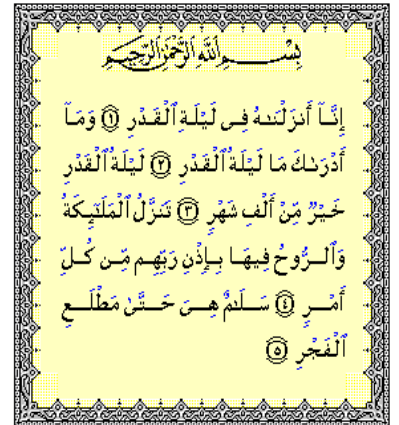 بِسْمِ اللَّهِ الرَّحْمَٰنِ الرَّحِيمِ
إِنَّآ أَنزَلْنَـٰهُ فِى لَيْلَةِ ٱلْقَدْرِ ١ وَمَآ
أَدْرَىٰكَ مَا لَيْلَةُ ٱلْقَدْرِ ٢ لَيْلَةُ ٱلْقَدْرِ
خَيْرٌ مِّنْ أَلْفِ شَهْرٍ ٣ تَنَزَّلُ ٱلْمَلَـٰٓئِكَةُ
وَٱلـرُّوحُ فِيهَا بِـإِذْنِ رَبِّهِـم مِّـن كُـلِّ
أَمْـرٍ ٤ سَـلَـٰمٌ هِـىَ حَـتَّىٰ مَطْلَـعِ
ٱلْفَجْرِ ٥